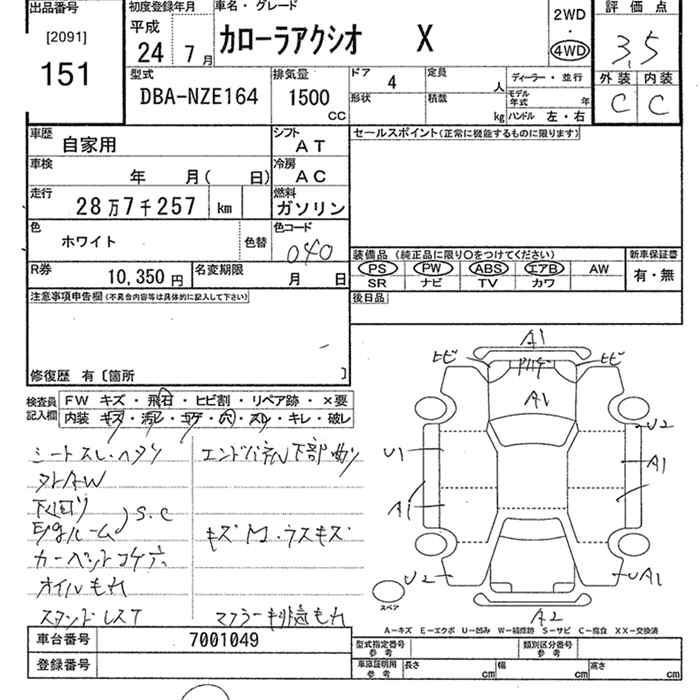 出品番号
[2091]
151
初度登録年月
平成
24 7月
車名・グレード
カローラアクシオ X
2WD
・
4WD
評価点
3.5
外装 内装
C C
型式
DBA-NZE164
排気量
1500
CC
ドア 4
定員 人
ディーラー・並行
形状
積載 kg
モデル年式 年
ハンドル 左・右
車歴
自家用
シフト
AT
セールスポイント(正常に機能するものに限ります)
車検
年 月( 日)
冷房
AC
走行
28万7千257 km
燃料
ガソリン
色
ホワイト
色替
色コード
040
装備品 (純正品に限り○をつけてください)
新車保証書
PS PW ABS エアB AW
有・無
SR ナビ TV カワ
R券
10,350 円
名変期限
月 日
後日品
注意事項申告欄(不具合内容等は具体的に記入して下さい)
修復歴 有〔箇所 〕
検査員記入欄
FW キズ・飛石・ヒビ割・リペア跡・×要
内装 キズ・汚レ・コゲ・穴・スレ・キレ・破レ
シートスレ・ヘタリ
エンドパネル下部曲り
外AW
下回り
S.C
キズM.ラスキズ
カーペットコゲ穴
オイルもれ
スタンドレスT
マフラー排気もれ
A1
ヒビ
ヒビ
A1
U2
U1
A1
A1
U2
UA1
A2
スペア
A-キズ E-エクボ U-凹み W-補修跡 S-サビ C-腐食 XX-交換済
車台番号
7001049
登録番号
型式指定番号
参考
類別区分番号
参考
車庫証明用
参考
長さ cm
幅 cm
高さ cm